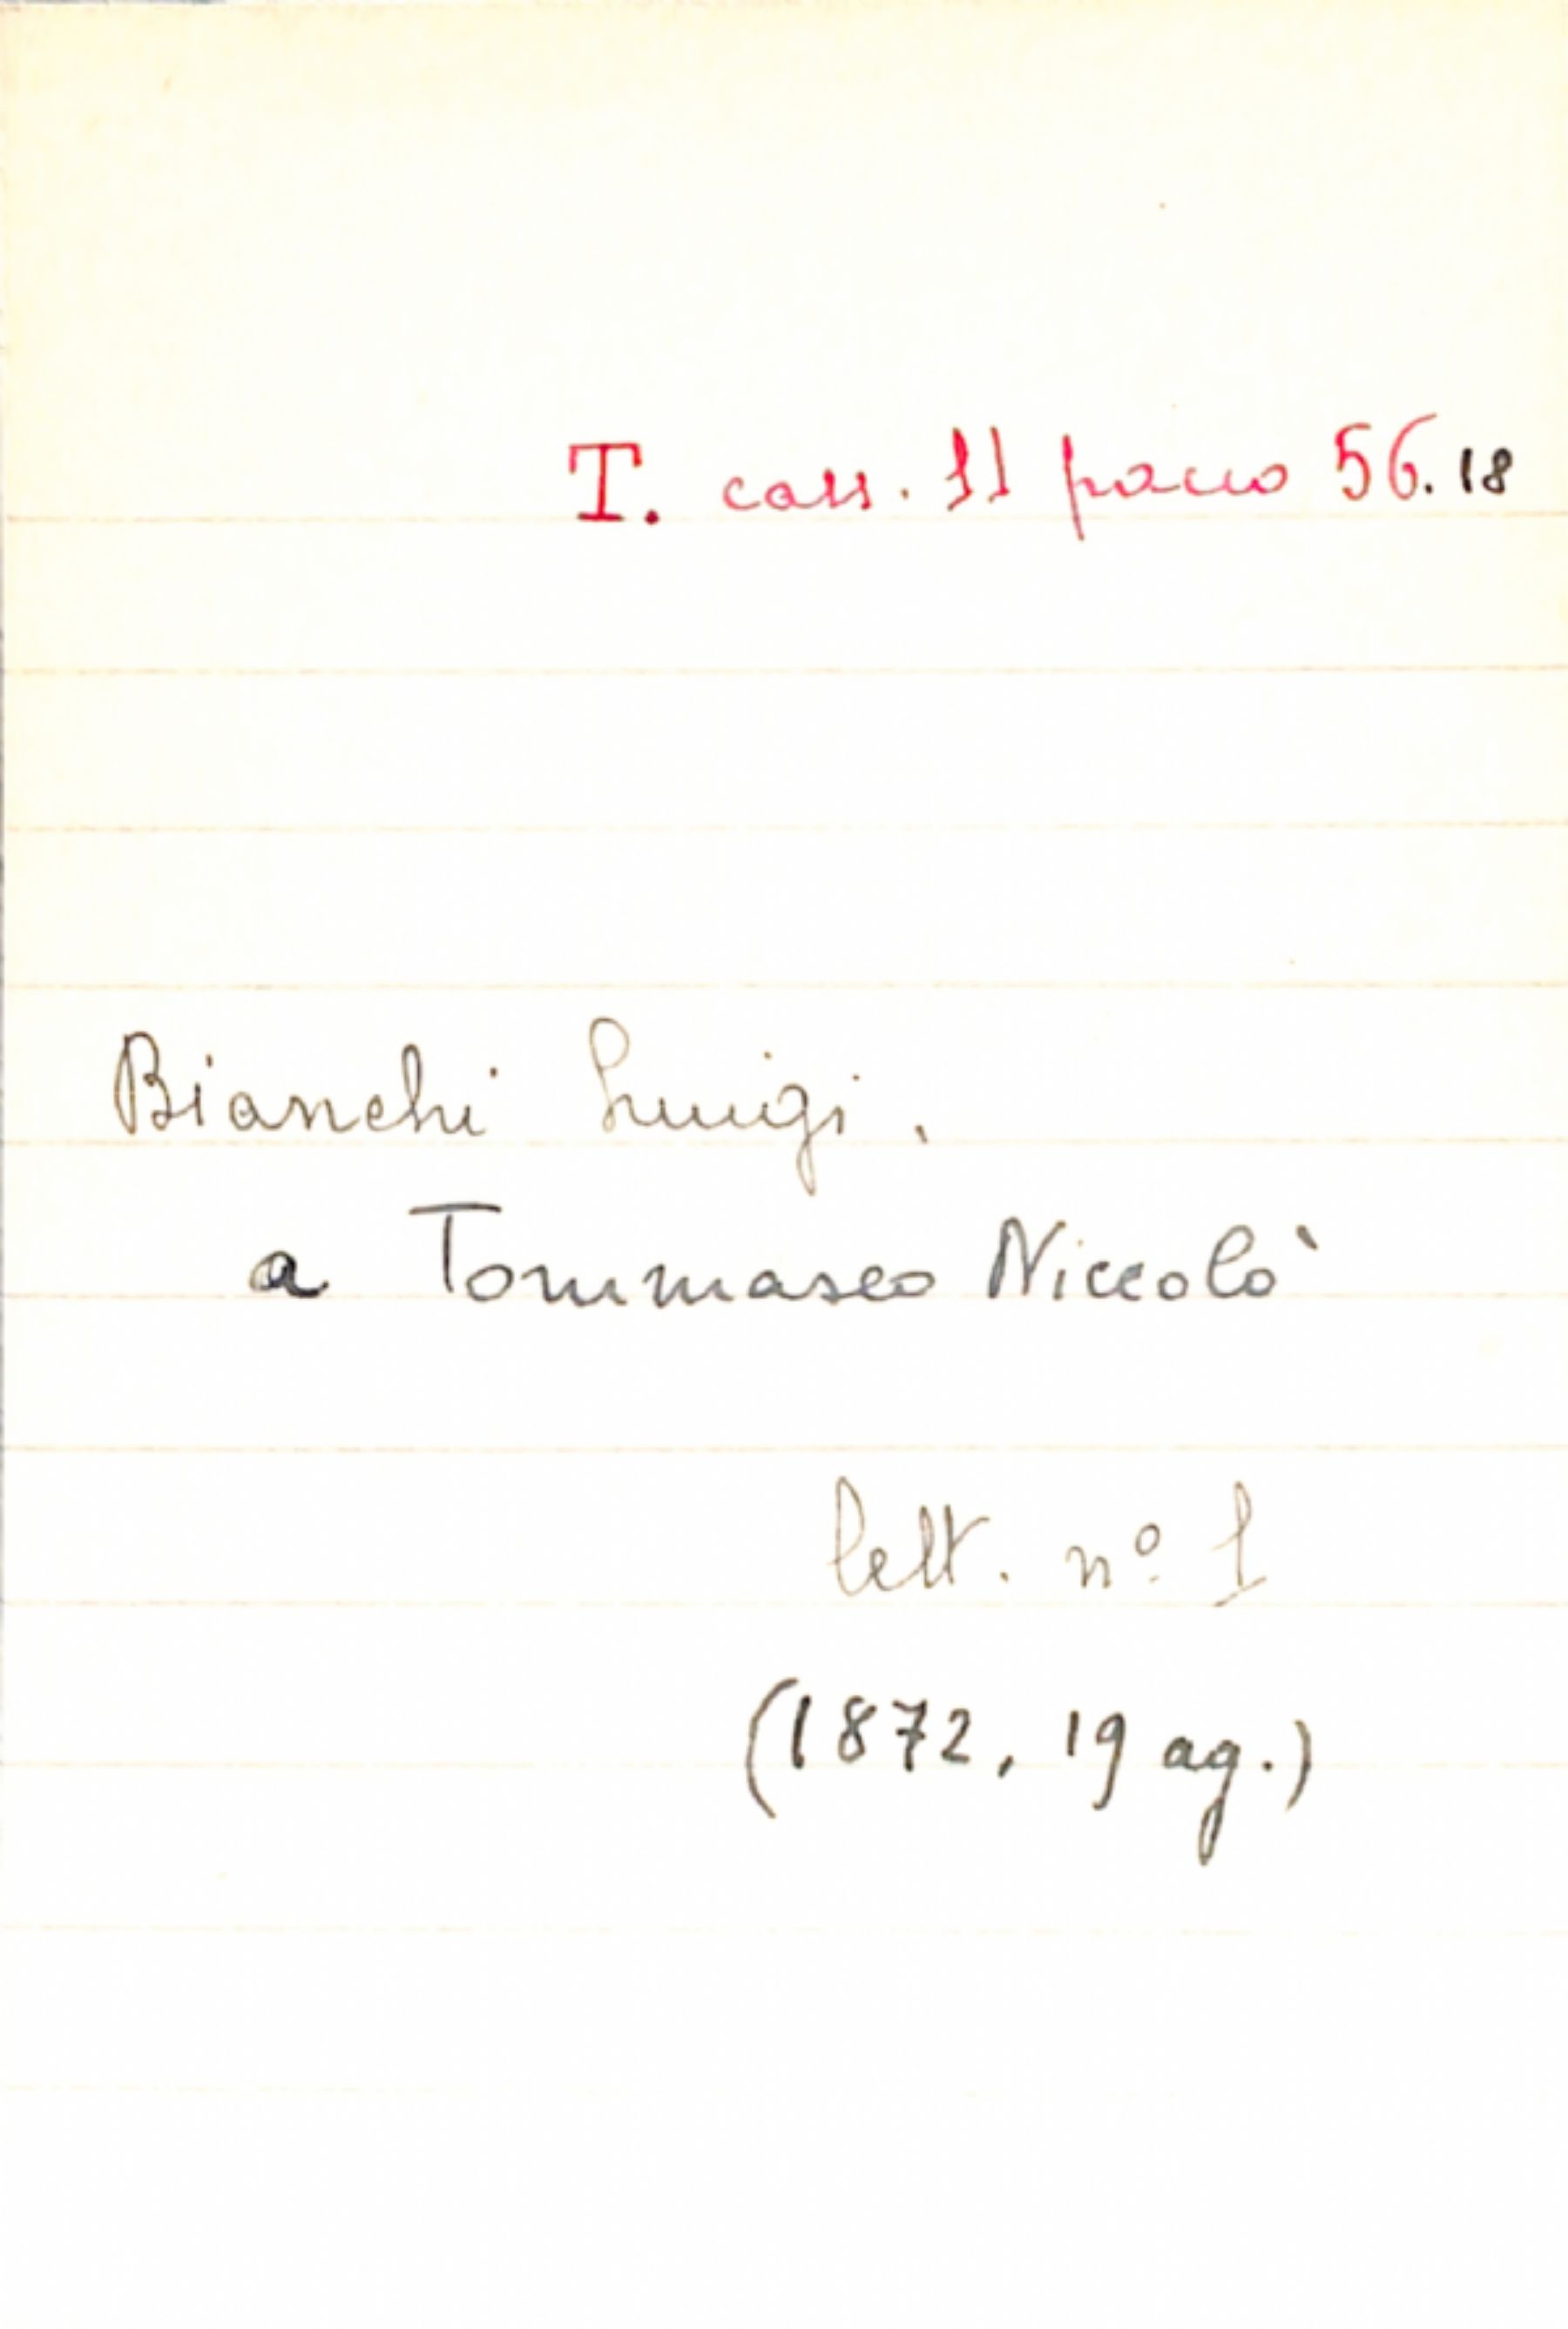 T. cass. 11 pacco 56.18
Bianchi Luigi.
a Tommaseo Niccolò
lett. nº 1
(1872, 19 ag.)